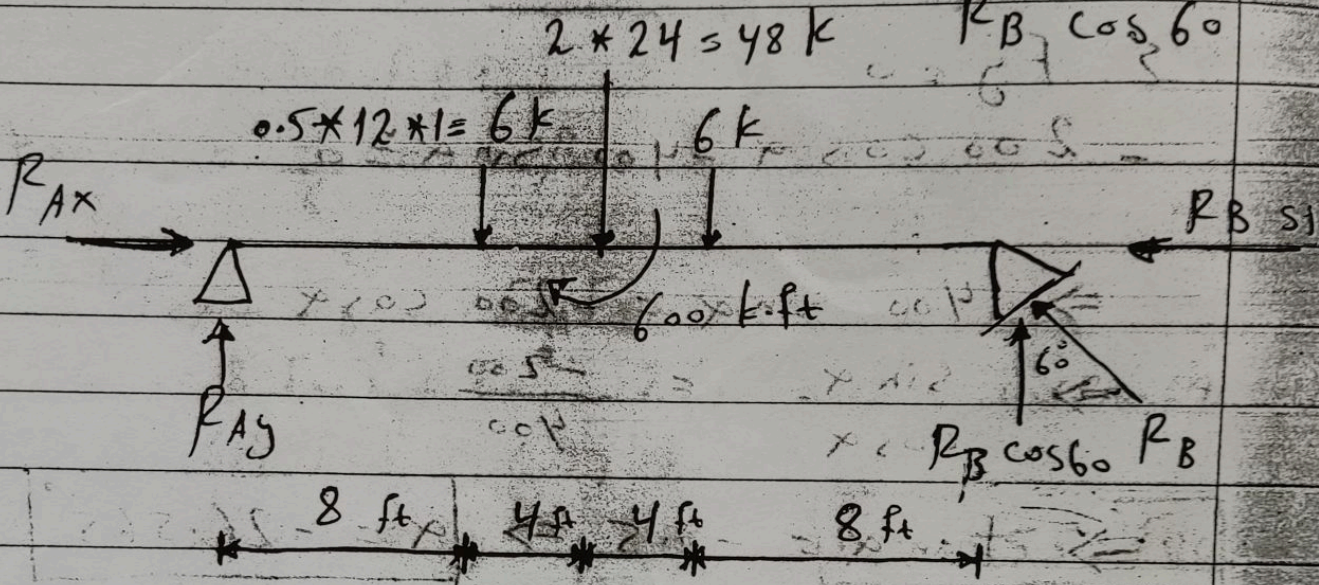 2 * 24 = 48 k
RB cos 60
0.5*12*1= 6 k
6 k
RAx
RB si
600 k.ft
60°
RAy
RB cos60
RB
8 ft
4 ft
4 ft
8 ft